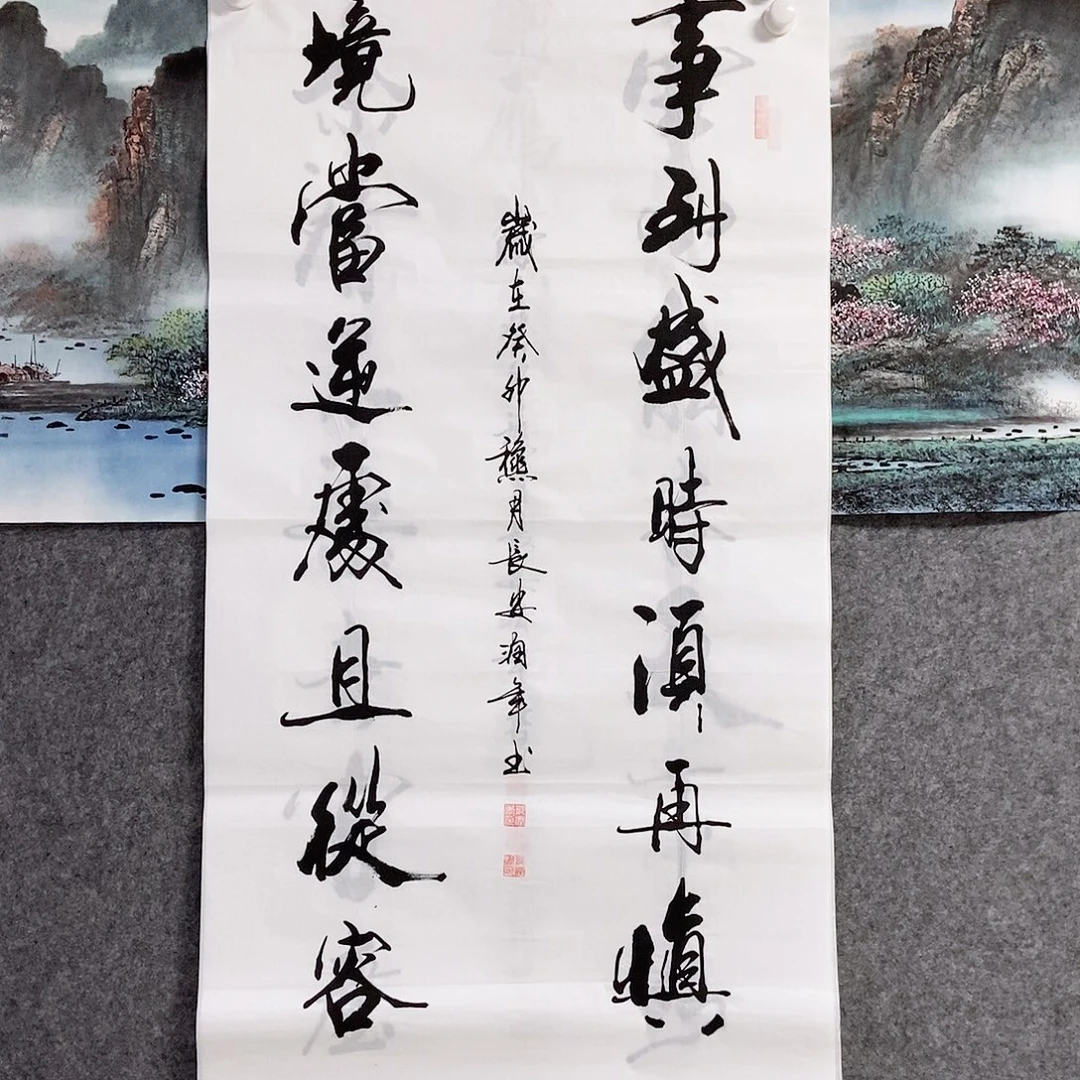 事到盛時須再慎
境當逆處且從容
歲在癸卯穐月長安润年书